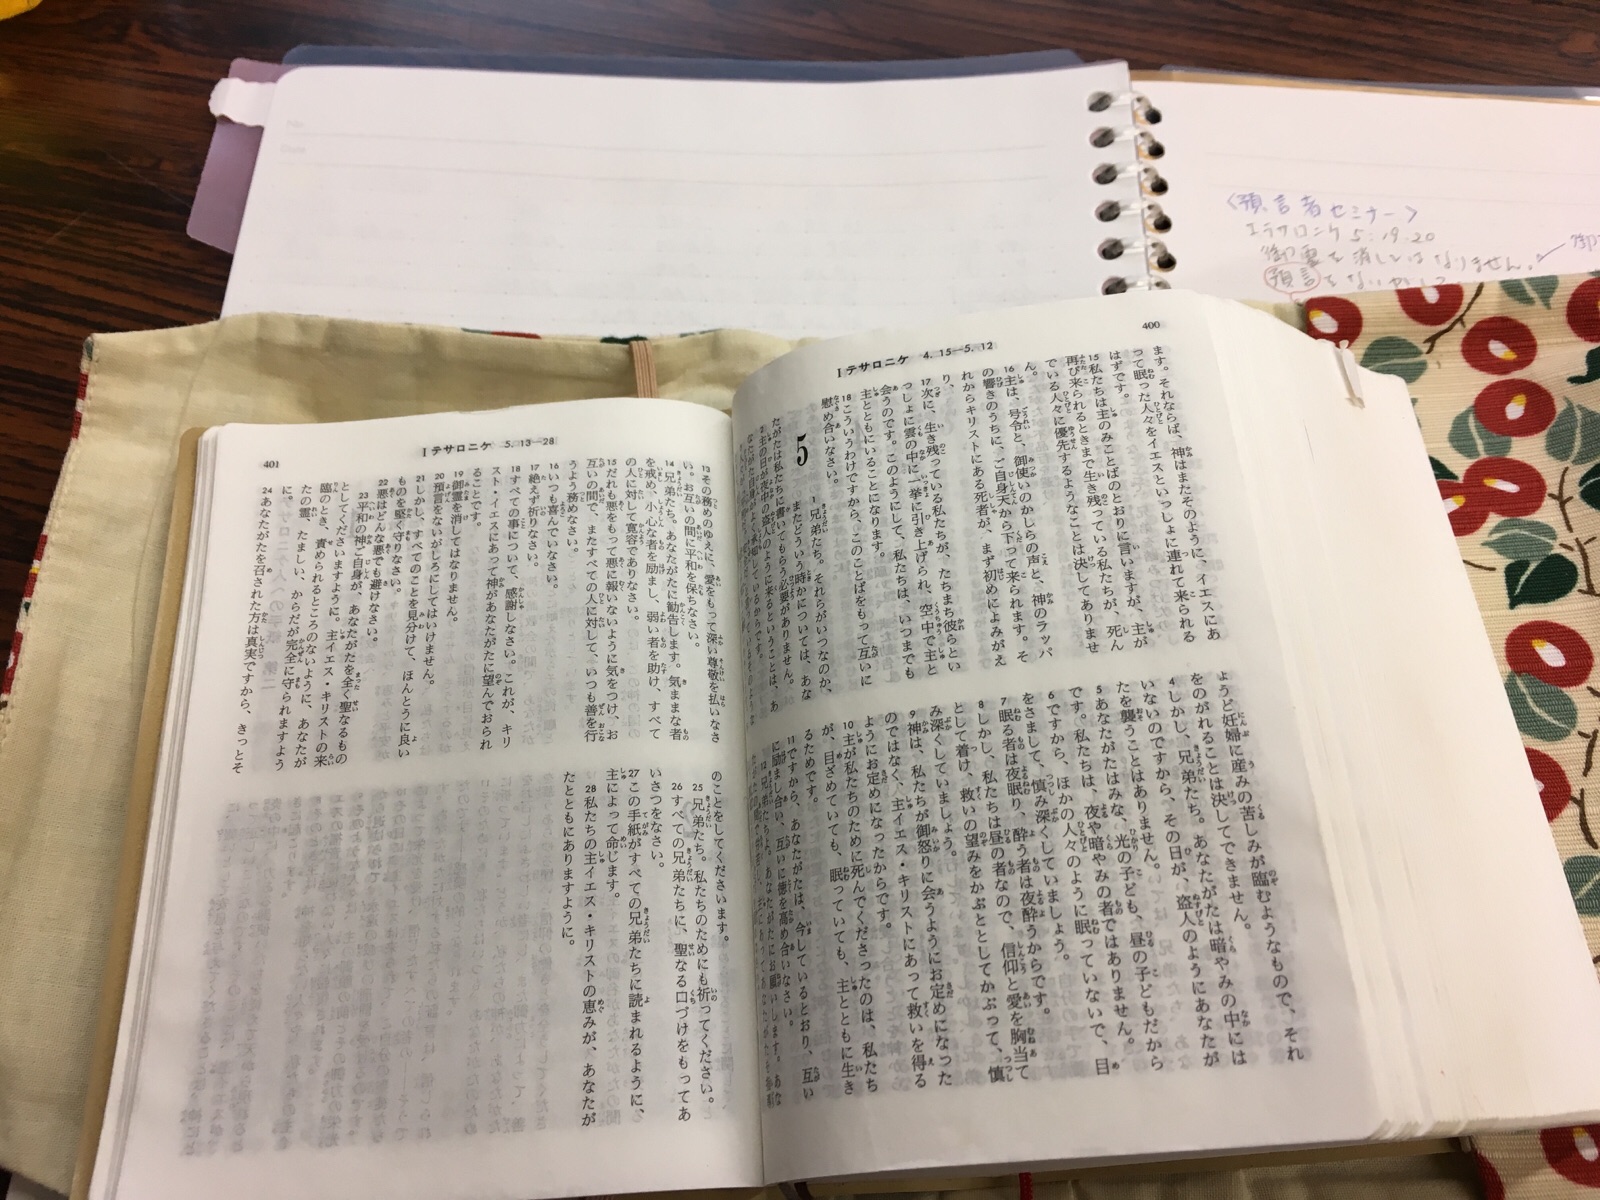 〈預言者セミナー〉
Iテサロニケ 5:19.20
御霊を消してはなりません。
預言をないがしろ
400
Iテサロニケ 4. 15—5. 12
ます。それならば、神はまたそのように、イエスにあ
って眠った人々をイエスといっしょに連れて来られる
はずです。
15私たちは主のみことばのとおりに言いますが、主が
再び来られるときまで生き残っている私たちが、死ん
でいる人々に優先するようなことは決してありませ
ん。
16主は、号令と、御使いのかしらの声と、神のラッパ
の響きのうちに、ご自身天から下って来られます。そ
れからキリストにある死者が、まず初めによみがえ
り、
17次に、生き残っている私たちが、たちまち彼らとい
っしょに雲の中に一挙に引き上げられ、空中で主と
会うのです。このようにして、私たちは、いつまでも
主とともにいることになります。
18こういうわけですから、このことばをもって互いに
慰め合いなさい。
5
1兄弟たち。それらがいつなのか、
またどういう時かについては、あな
たがたは私たちに書いてもらう必要がありません。
2主の日が夜中の盗人のように来るということは、あ
なたがた自身がよく承知しているからです。
ようど妊婦に産みの苦しみが臨むようなもので、それ
をのがれることは決してできません。
4しかし、兄弟たち。あなたがたは暗やみの中には
いないのですから、その日が、盗人のようにあなたが
たを襲うことはありません。
5あなたがたはみな、光の子ども、昼の子どもだから
です。私たちは、夜や暗やみの者ではありません。
6ですから、ほかの人々のように眠っていないで、目
をさまして、慎み深くしていましょう。
7眠る者は夜眠り、酔う者は夜酔うからです。
8しかし、私たちは昼の者なので、信仰と愛を胸当て
として着け、救いの望みをかぶととしてかぶって、慎
み深くしていましょう。
9神は、私たちが御怒りに会うようにお定めになった
のではなく、主イエス・キリストにあって救いを得る
ようにお定めになったからです。
10主が私たちのために死んでくださったのは、私たち
が、目ざめていても、眠っていても、主とともに生き
るためです。
11ですから、あなたがたは、今しているとおり、互い
に励まし合い、互いに徳を高め合いなさい。
12兄弟たちよ。あなたがたにお願いします。
Iテサロニケ 5. 13—28
401
13その務めのゆえに、愛をもって深い尊敬を払いなさ
い。お互いの間に平和を保ちなさい。
14兄弟たち。あなたがたに勧告します。気ままな者
を戒め、小心な者を励まし、弱い者を助け、すべて
の人に対して寛容でありなさい。
15だれも悪をもって悪に報いないように気をつけ、お
互いの間で、またすべての人に対して、いつも善を行
うよう務めなさい。
16いつも喜んでいなさい。
17絶えず祈りなさい。
18すべての事について、感謝しなさい。これが、キリ
スト・イエスにあって神があなたがたに望んでおられ
ることです。
19御霊を消してはなりません。
20預言をないがしろにしてはいけません。
21しかし、すべてのことを見分けて、ほんとうに良い
ものを堅く守りなさい。
22悪はどんな悪でも避けなさい。
23平和の神ご自身が、あなたがたを全く聖なるもの
としてくださいますように。主イエス・キリストの来
臨のとき、責められるところのないように、あなたが
たの霊、たましい、からだが完全に守られますよう
に。
24あなたがたを召された方は真実ですから、きっとそ
のことをしてくださいます。
25兄弟たち。私たちのためにも祈ってください。
26すべての兄弟たちに、聖なる口づけをもってあ
いさつをなさい。
27この手紙がすべての兄弟たちに読まれるように、
主によって命じます。
28私たちの主イエス・キリストの恵みが、あなたが
たとともにありますように。